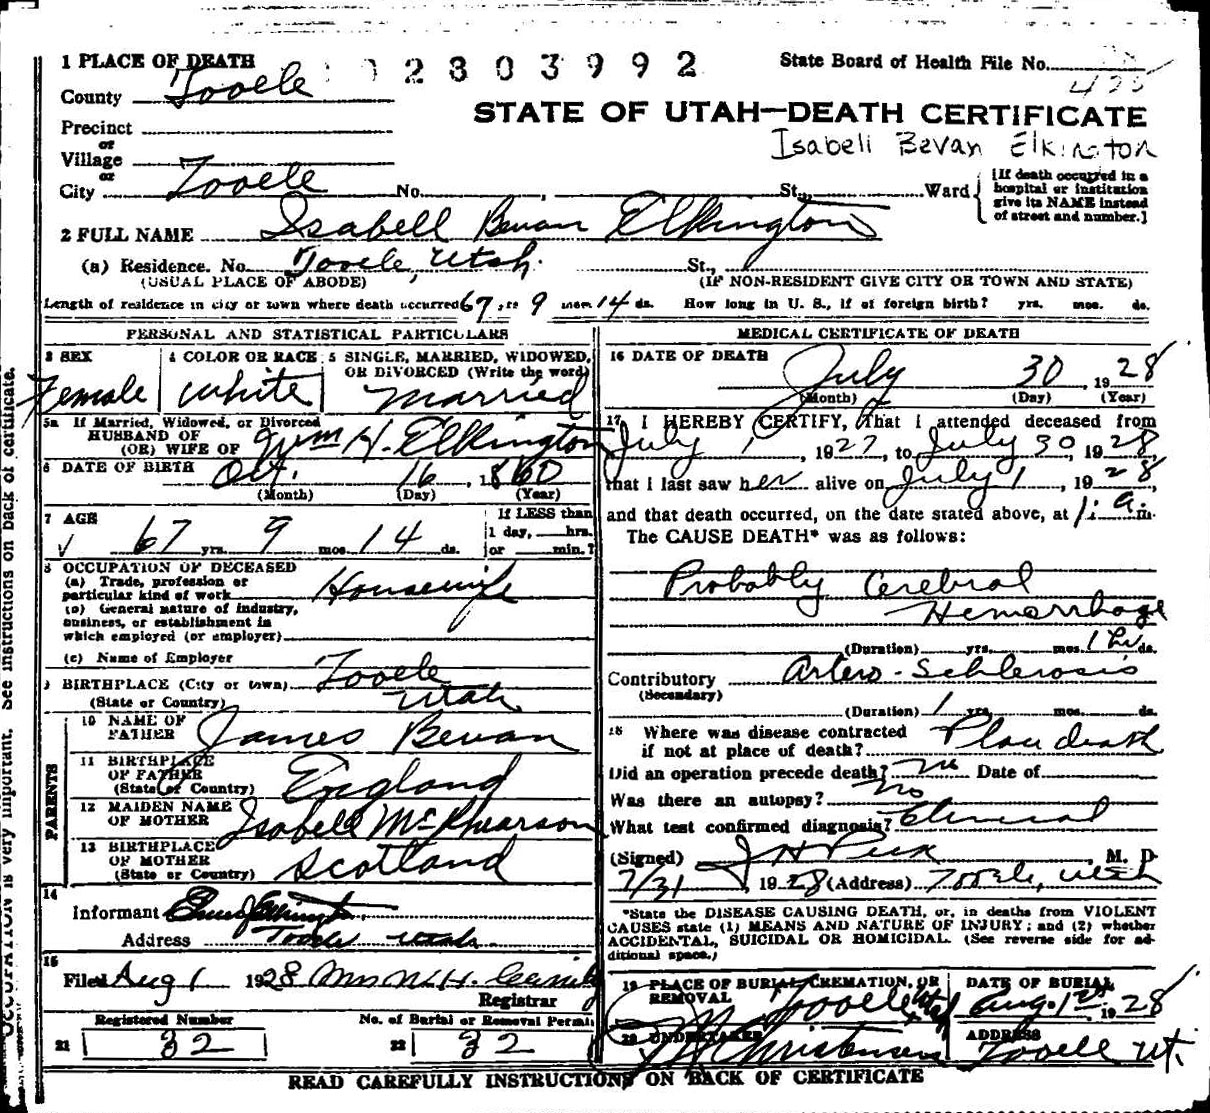 1 PLACE OF DEATH
2803992
State Board of Health File No.
County Tooele
STATE OF UTAH—DEATH CERTIFICATE
Precinct
or
Isabell Bevan Elkington
Village
or
City Tooele No. St., Ward
[If death occurred in a hospital or institution give its NAME instead of street and number.]
2 FULL NAME Isabell Bevan Elkington
(a) Residence. No. Tooele, Utah. St.,
(USUAL PLACE OF ABODE) (IF NON-RESIDENT GIVE CITY OR TOWN AND STATE)
Length of residence in city or town where death occurred 67 yrs 9 mos 14 ds. How long in U. S., if of foreign birth? yrs. mos. ds.
PERSONAL AND STATISTICAL PARTICULARS
3 SEX
Female
4 COLOR OR RACE
White
5 SINGLE, MARRIED, WIDOWED, OR DIVORCED (Write the word)
Married
5a If Married, Widowed, or Divorced
HUSBAND OF
(OR) WIFE OF Wm H. Elkington
6 DATE OF BIRTH Oct. 16, 1860
(Month) (Day) (Year)
7 AGE
67 yrs. 9 mos. 14 ds.
If LESS than
1 day, hrs.
or min.?
8 OCCUPATION OF DECEASED
(a) Trade, profession or
particular kind of work Housewife
(b) General nature of industry,
business, or establishment in
which employed (or employer)
(c) Name of Employer
9 BIRTHPLACE (City or town) Tooele
(State or Country) Utah
PARENTS
10 NAME OF
FATHER James Bevan
11 BIRTHPLACE
OF FATHER
(State or Country) England
12 MAIDEN NAME
OF MOTHER Isabell McPhearson
13 BIRTHPLACE
OF MOTHER
(State or Country) Scotland
14
Informant
Address Tooele Utah
15
Filed Aug 1 1928
Registrar
Registered Number
21 32
No. of Burial or Removal Permit
22 32
MEDICAL CERTIFICATE OF DEATH
16 DATE OF DEATH
July 30, 1928
(Month) (Day) (Year)
17 I HEREBY CERTIFY, That I attended deceased from
July 1, 1927, to July 30, 1928,
that I last saw her alive on July 1, 1928,
and that death occurred, on the date stated above, at 1: a.m.
The CAUSE DEATH* was as follows:
Probably Cerebral
Hemorrhage
(Duration) yrs. mos. ds.
Contributory Artero-Schlerosis
(Secondary)
(Duration) 1 yrs. mos. ds.
18 Where was disease contracted
if not at place of death? Place death
Did an operation precede death? no Date of
Was there an autopsy? No
What test confirmed diagnosis? Clinical
(Signed) J H Peck, M. D.
7/31, 1928 (Address) Tooele, Utah
*State the DISEASE CAUSING DEATH, or, in deaths from VIOLENT
CAUSES state (1) MEANS AND NATURE OF INJURY; and (2) whether
ACCIDENTAL, SUICIDAL OR HOMICIDAL. (See reverse side for ad-
ditional space.)
19 PLACE OF BURIAL, CREMATION, OR
REMOVAL Tooele Utah
DATE OF BURIAL
Aug. 1st 1928
20 UNDERTAKER
Christensen
ADDRESS
Tooele Ut.
READ CAREFULLY INSTRUCTIONS ON BACK OF CERTIFICATE
OCCUPATION is very important. See instructions on back of certificate.